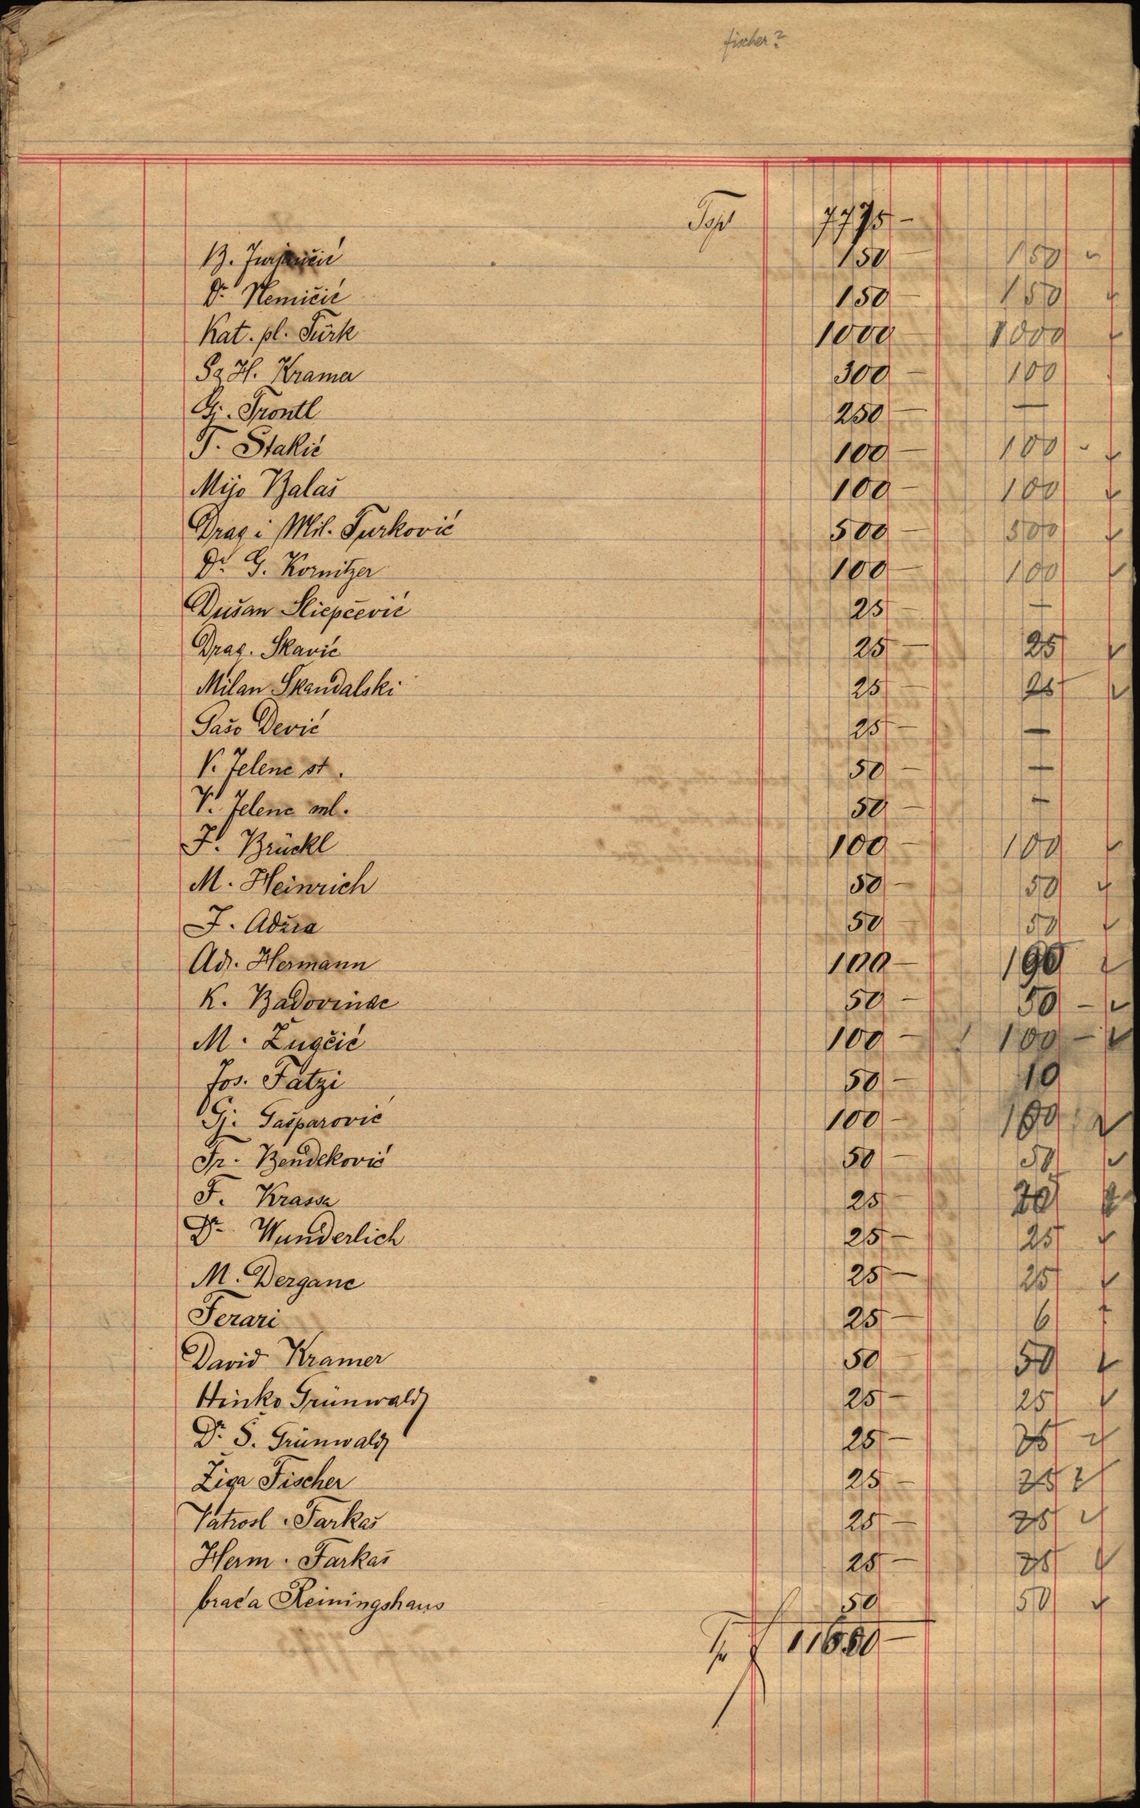 fischer?
Tspt 7775 —
B. Jurjančić 150 — 150 ✓
Dr. Nemičić 150 — 150 ✓
Kat. pl. Türk 1000 — 1000 ✓
H. Kramer 300 — 100
Gj. Trontl 250 — —
T. Stakić 100 — 100 - ✓
Mijo Balaš 100 — 100 ✓
Drag i Mil. Turković 500 — 500 ✓
Dr. G. Kornitzer 100 — 100 ✓
Dušan Sliepčević 25 — —
Drag. Skavić 25 — 25 ✓
Milan Skandalski 25 — 25 ✓
Gašo Dević 25 — —
V. Jelenc st. 50 — —
V. Jelenc ml. 50 — —
F. Brückl 100 — 100 ✓
M. Heinrich 50 — 50 ✓
F. Adžia 50 — 50 ✓
Ad. Hermann 100 — 100 ✓
K. Badovinac 50 — 50 — ✓
M. Žugčić 100 — 100 — ✓
Jos. Fatzi 50 — 10
Gj. Gašparović 100 — 100 ✓
Fr. Bendeković 50 — 50 ✓
F. Krassa 25
Dr. Wunderlich 25 — 25 ✓
M. Derganc 25 — 25 ✓
Ferari 25 — 6
David Kramer 50 — 50 ✓
Hinko Grünwald 25 — 25 ✓
Dr. Š. Grünwald 25 — 25 ✓
Žiga Fischer 25 — 25 ? ✓
Vatrosl. Farkaš 25 — 25 ✓
Herm. Farkaš 25 — 25 ✓
braća Reiningshaus 50 50 ✓
11650 —